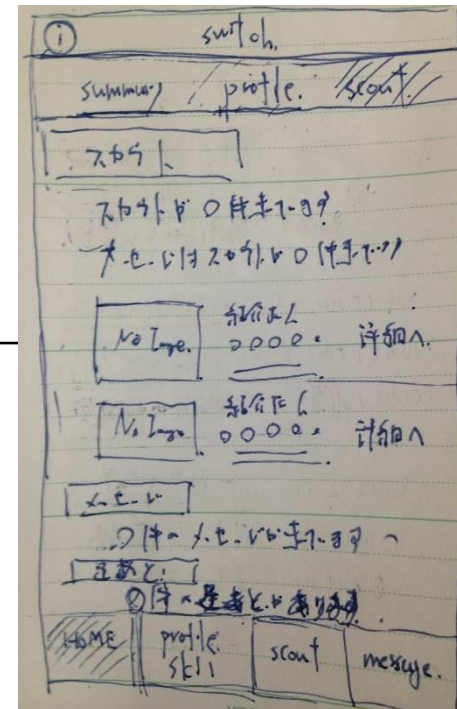 i switch.
summary profile. scout
スカウト
スカウトが〇件来ています
メッセージはスカウトが〇件来て
No Image. 〇〇〇〇. 詳細へ
No Image 〇〇〇〇. 詳細へ
メッセージ
〇件のメッセージが来ています
〇件の があります
HOME profile skill scout message.